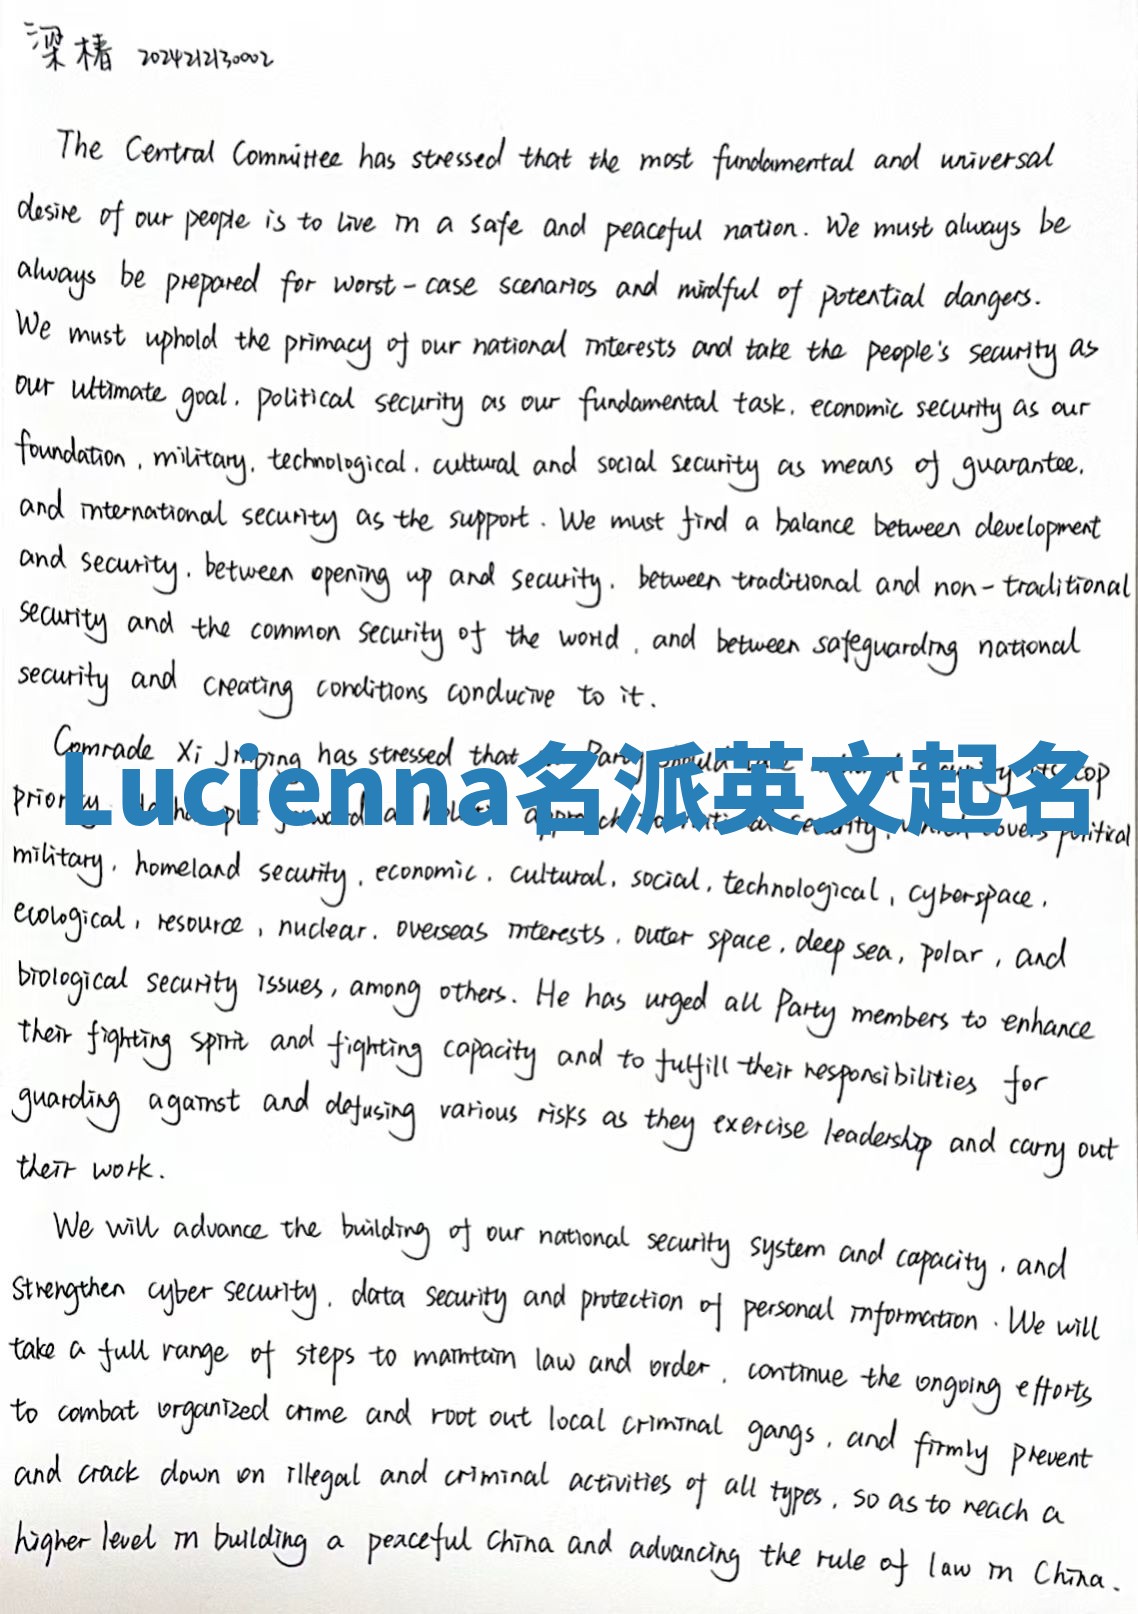 梁椿 2024212130002
The Central Committee has stressed that the most fundamental and universal
desire of our people is to live in a safe and peaceful nation. We must always be
always be prepared for worst-case scenarios and mindful of potential dangers.
We must uphold the primacy of our national interests and take the people's security as
our ultimate goal, political security as our fundamental task, economic security as our
foundation, military, technological, cultural and social security as means of guarantee,
and international security as the support. We must find a balance between development
and security, between opening up and security, between traditional and non-traditional
security and the common security of the world, and between safeguarding national
security and creating conditions conducive to it.
Comrade Xi Jinping has stressed that Party should security its top
Lucienna名派英文起名
priority. put forward a approach to security, which covers political
military, homeland security, economic, cultural, social, technological, cyberspace,
ecological, resource, nuclear, overseas interests, outer space, deep sea, polar, and
biological security issues, among others. He has urged all Party members to enhance
their fighting spirit and fighting capacity and to fulfill their responsibilities for
guarding against and defusing various risks as they exercise leadership and carry out
their work.
We will advance the building of our national security system and capacity, and
strengthen cyber security, data security and protection of personal information. We will
take a full range of steps to maintain law and order, continue the ongoing efforts
to combat organized crime and root out local criminal gangs, and firmly prevent
and crack down on illegal and criminal activities of all types, so as to reach a
higher level in building a peaceful China and advancing the rule of law in China.